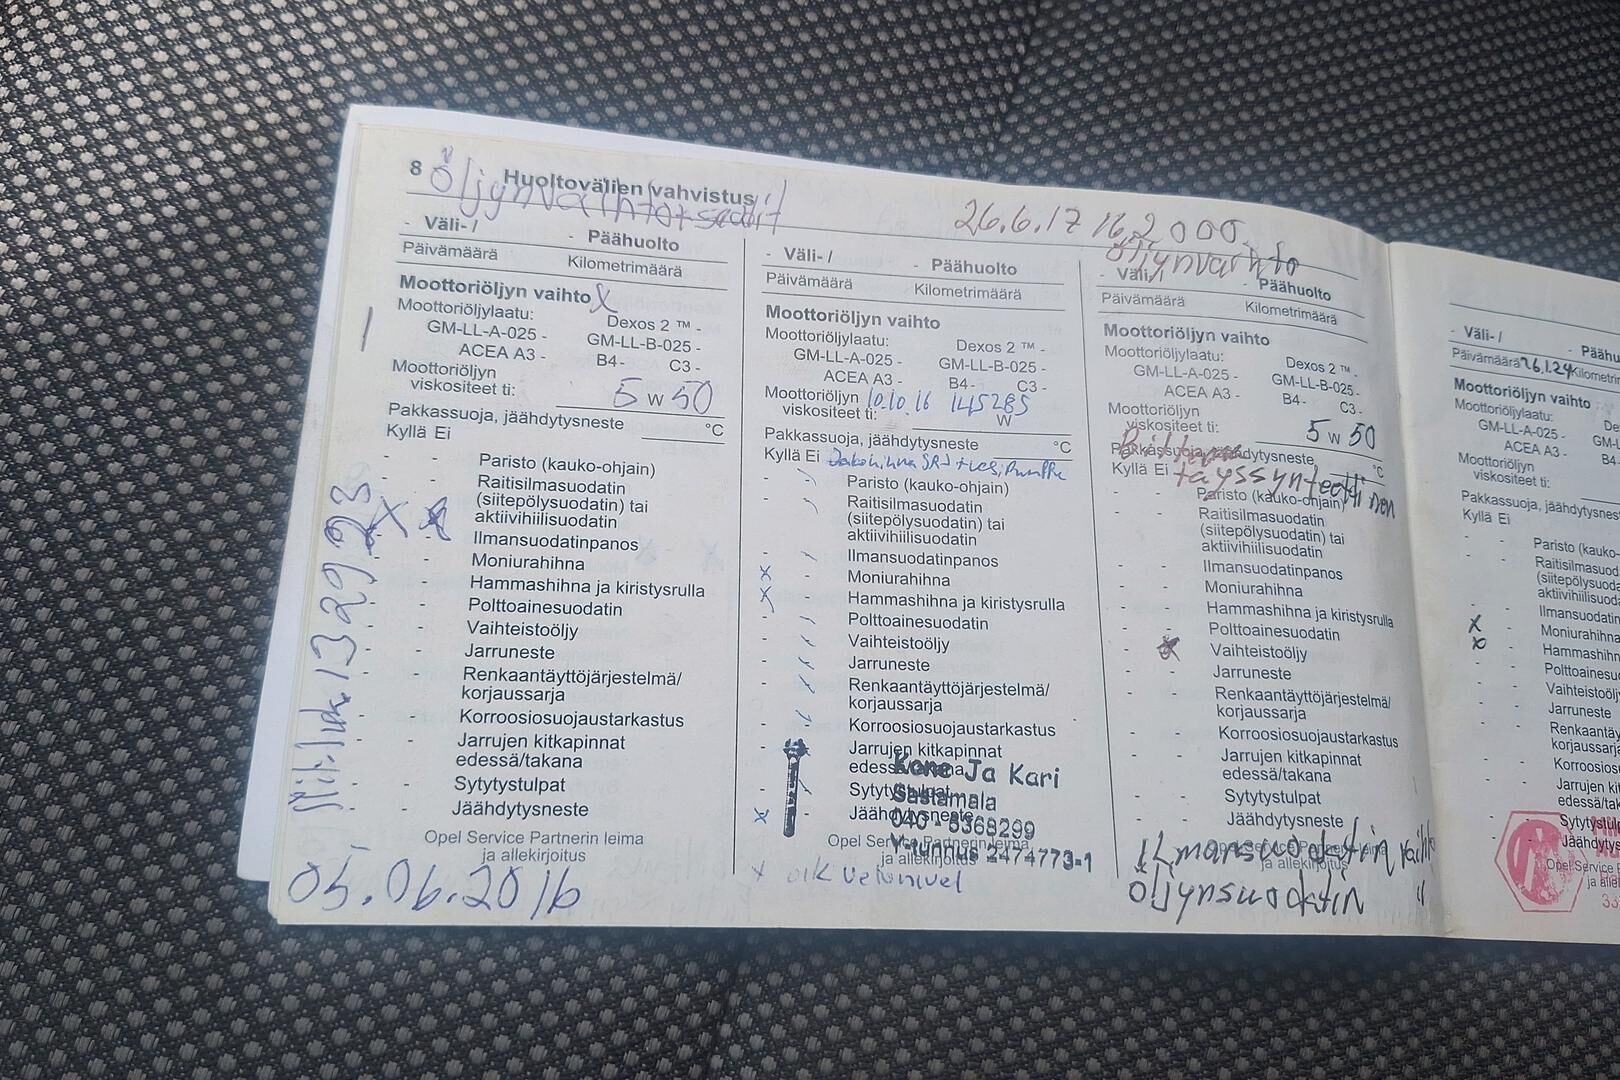 8 Huoltovälien vahvistus
Öljynvaihto
- Väli- / - Päähuolto
Päivämäärä Kilometrimäärä
Moottoriöljyn vaihto X
Moottoriöljylaatu: Dexos 2 ™ -
GM-LL-A-025 - GM-LL-B-025 -
ACEA A3 - B4- C3 -
Moottoriöljyn
viskositeet ti: 5 W 50
Pakkassuoja, jäähdytysneste °C
Kyllä Ei
- - Paristo (kauko-ohjain)
- - Raitisilmasuodatin
(siitepölysuodatin) tai
aktiivihiilisuodatin
Ilmansuodatinpanos
- - Moniurahihna
- - Hammashihna ja kiristysrulla
- - Polttoainesuodatin
- - Vaihteistoöljy
- - Jarruneste
- - Renkaantäyttöjärjestelmä/
korjaussarja
- - Korroosiosuojaustarkastus
- - Jarrujen kitkapinnat
edessä/takana
- - Sytytystulpat
- - Jäähdytysneste
Opel Service Partnerin leima
ja allekirjoitus
05.06.2016
132923
- Väli- / - Päähuolto
Päivämäärä Kilometrimäärä
Moottoriöljyn vaihto
Moottoriöljylaatu: Dexos 2 ™ -
GM-LL-A-025 - GM-LL-B-025 -
ACEA A3 - B4- C3 -
Moottoriöljyn 10.10.16 145285
viskositeet ti: W
Pakkassuoja, jäähdytysneste °C
Kyllä Ei
Paristo (kauko-ohjain)
Raitisilmasuodatin
(siitepölysuodatin) tai
aktiivihiilisuodatin
Ilmansuodatinpanos
x Moniurahihna
x Hammashihna ja kiristysrulla
Polttoainesuodatin
Vaihteistoöljy
Jarruneste
Renkaantäyttöjärjestelmä/
korjaussarja
Korroosiosuojaustarkastus
Jarrujen kitkapinnat
edessä/takana
Sytytystulpat
x Jäähdytysneste
Opel Service Partnerin leima
ja allekirjoitus
Kone Ja Kari
Sastamala
040 - 5368299
Y-tunnus 2474773-1
x oik vetonivel
26.6.17 162000
Öljynvaihto
- Väli- / - Päähuolto
Päivämäärä Kilometrimäärä
Moottoriöljyn vaihto
Moottoriöljylaatu: Dexos 2 ™ -
GM-LL-A-025 - GM-LL-B-025 -
ACEA A3 - B4- C3 -
Moottoriöljyn
viskositeet ti: 5 W 50
Pakkassuoja, jäähdytysneste °C
Kyllä Ei täyssynteettinen
- - Paristo (kauko-ohjain)
- - Raitisilmasuodatin
(siitepölysuodatin) tai
aktiivihiilisuodatin
- - Ilmansuodatinpanos
- - Moniurahihna
- - Hammashihna ja kiristysrulla
- - Polttoainesuodatin
- Vaihteistoöljy
- - Jarruneste
- - Renkaantäyttöjärjestelmä/
korjaussarja
- - Korroosiosuojaustarkastus
- - Jarrujen kitkapinnat
edessä/takana
- - Sytytystulpat
- - Jäähdytysneste
Opel Service Partnerin leima
ja allekirjoitus
Ilmansuodatin
öljynsuodatin "
- Väli- / - Päähu
Päivämäärä 26.1.24 Kilometrim
Moottoriöljyn vaihto
Moottoriöljylaatu: De
GM-LL-A-025 - GM-L
ACEA A3 - B4-
Moottoriöljyn
viskositeet ti:
Pakkassuoja, jäähdytysnest
Kyllä Ei
- - Paristo (kauko-
- - Raitisilmasuod
(siitepölysuoda
aktiivihiilisuoda
- - Ilmansuodatin
x - Moniurahihna
x - Hammashihn
- - Polttoainesu
- - Vaihteistoöljy
- - Jarruneste
- - Renkaantäyt
korjaussarja
- - Korroosiosu
- - Jarrujen kit
edessä/taka
Sytytystulp
Jäähdytysn
Opel Service
ja alle